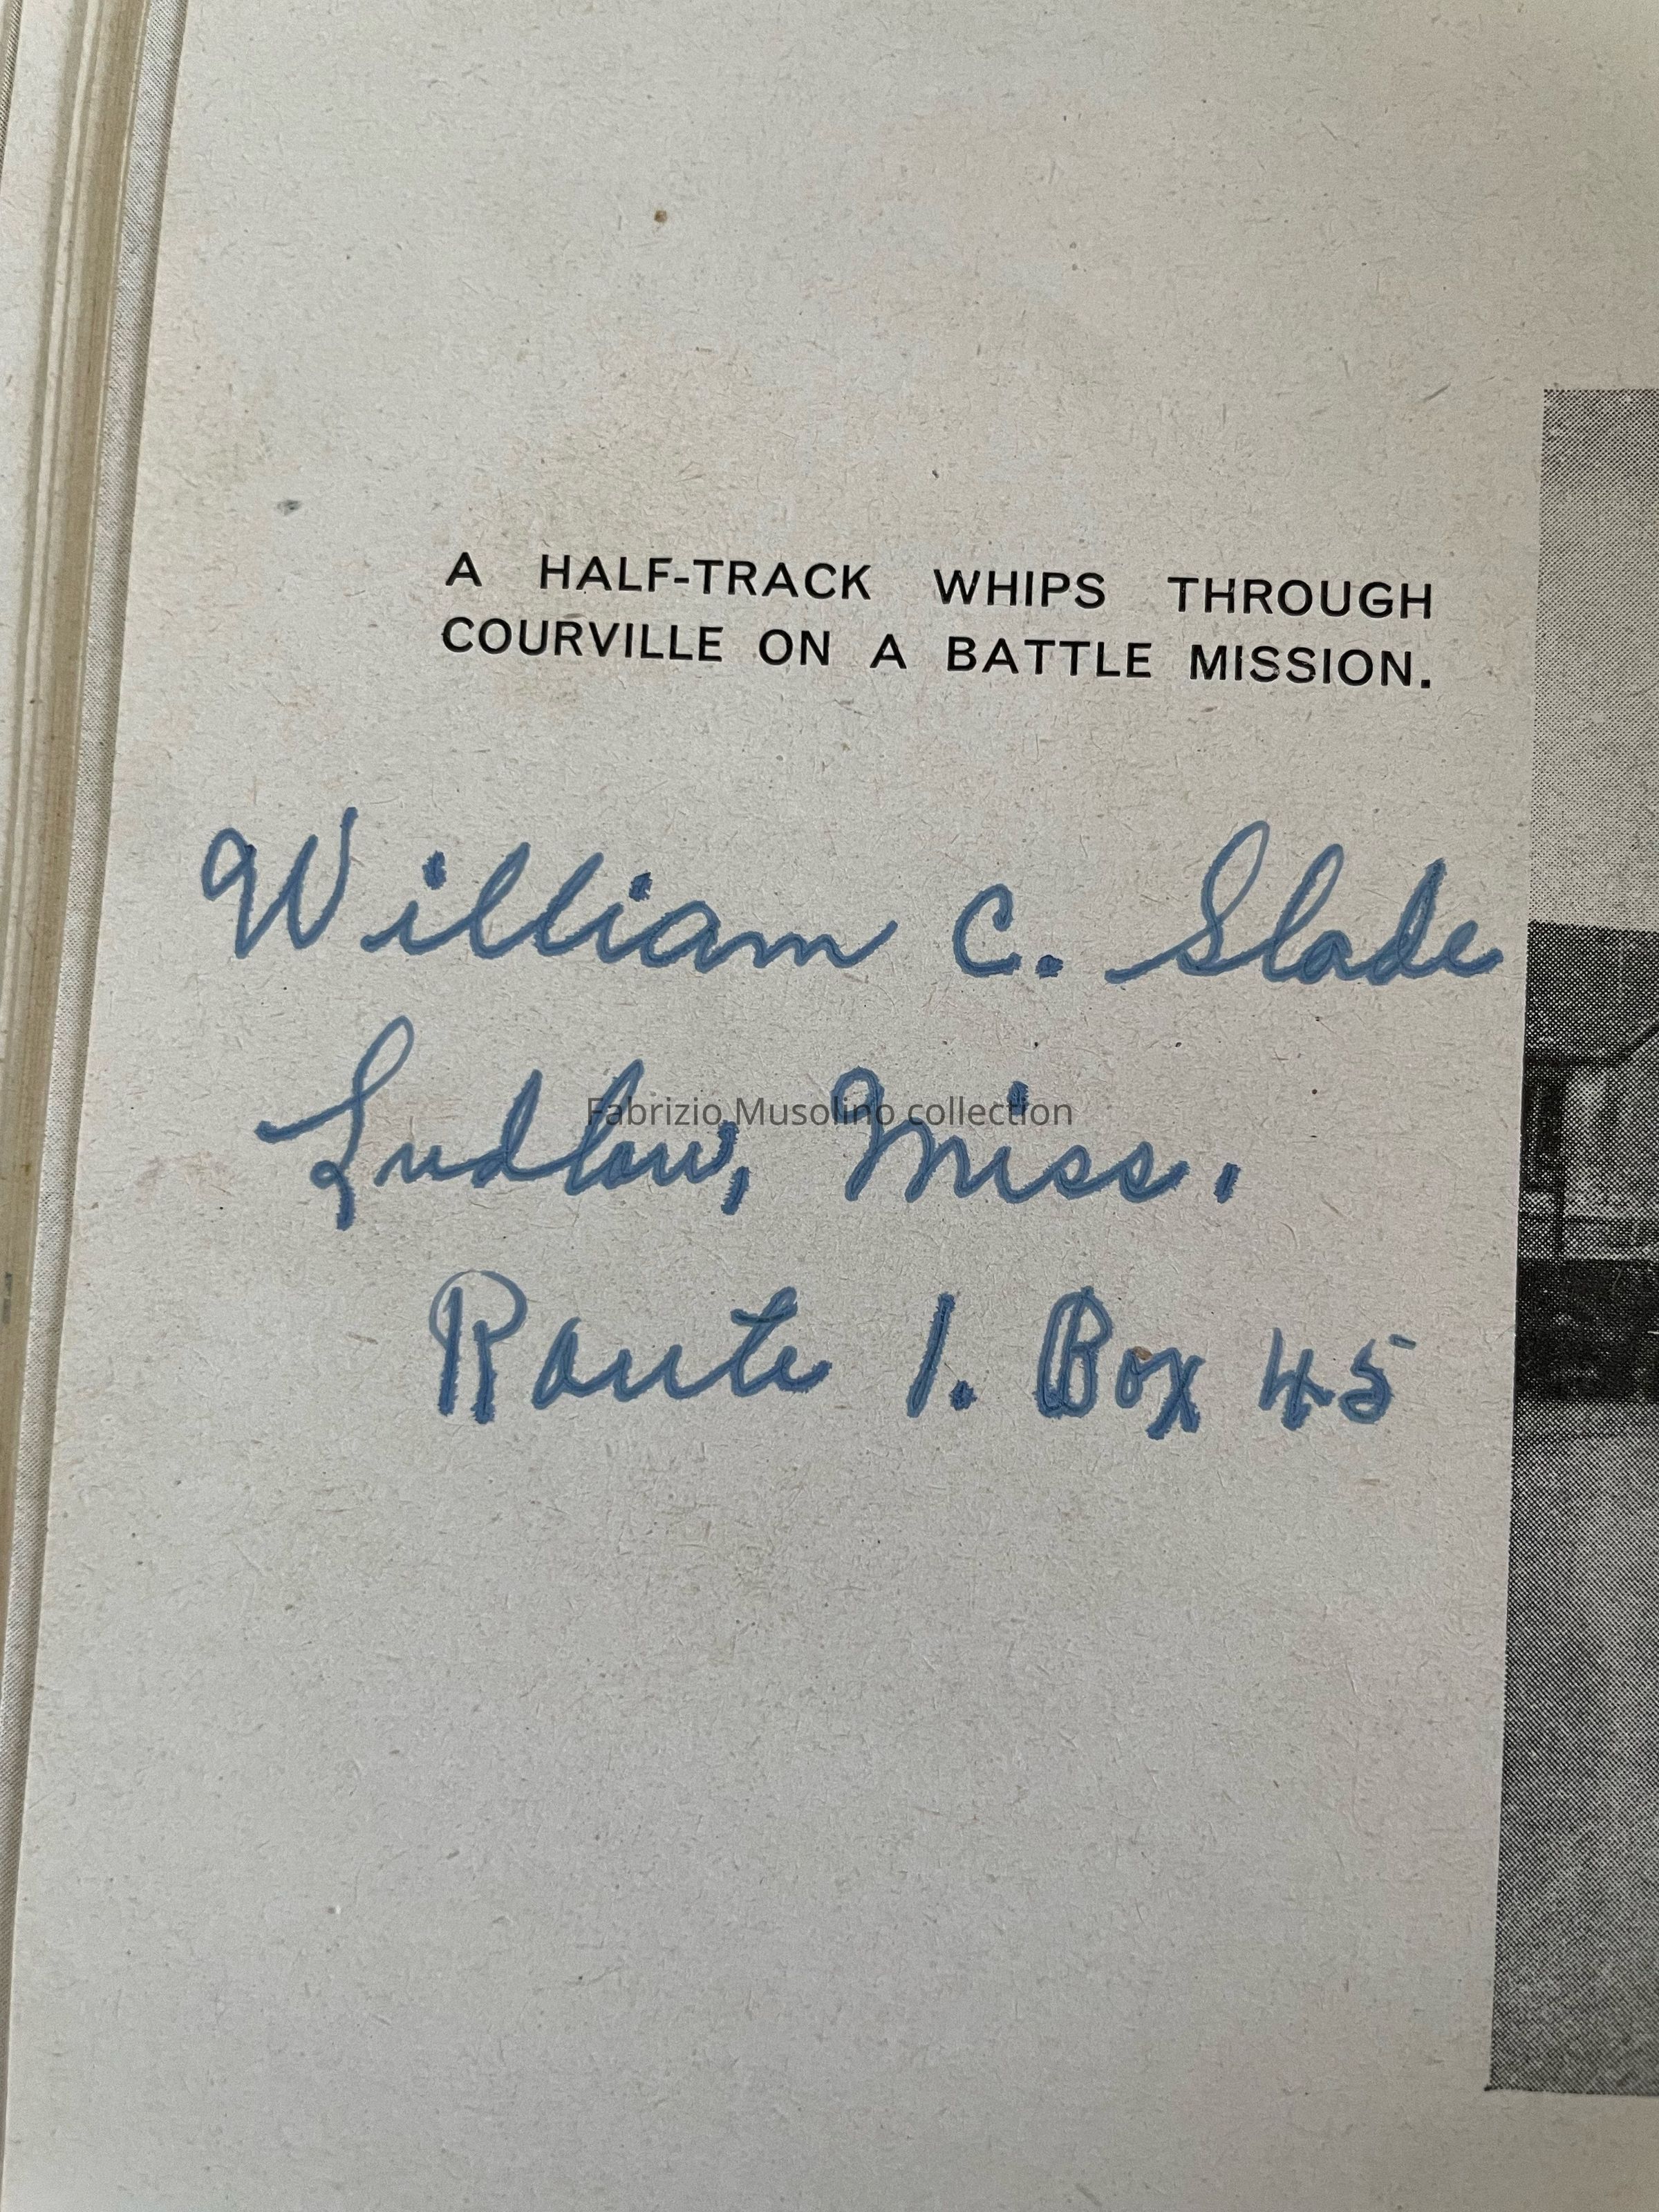 A HALF-TRACK WHIPS THROUGH
COURVILLE ON A BATTLE MISSION.
William C. Slade
Ludlow, Miss.
Fabrizio Musolino collection
Route 1. Box 45